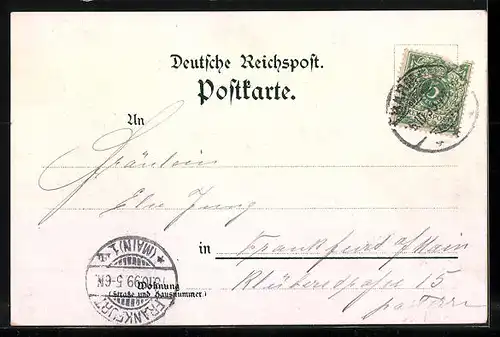 Deutsche Reichspost.
Postkarte.
An
Fräulein
Else Jung
in Frankfurt a/Main
15
parterre
Wohnung
(Straße und Hausnummer)
FRANKFURT
(MAIN) 1
99 5-6N
5